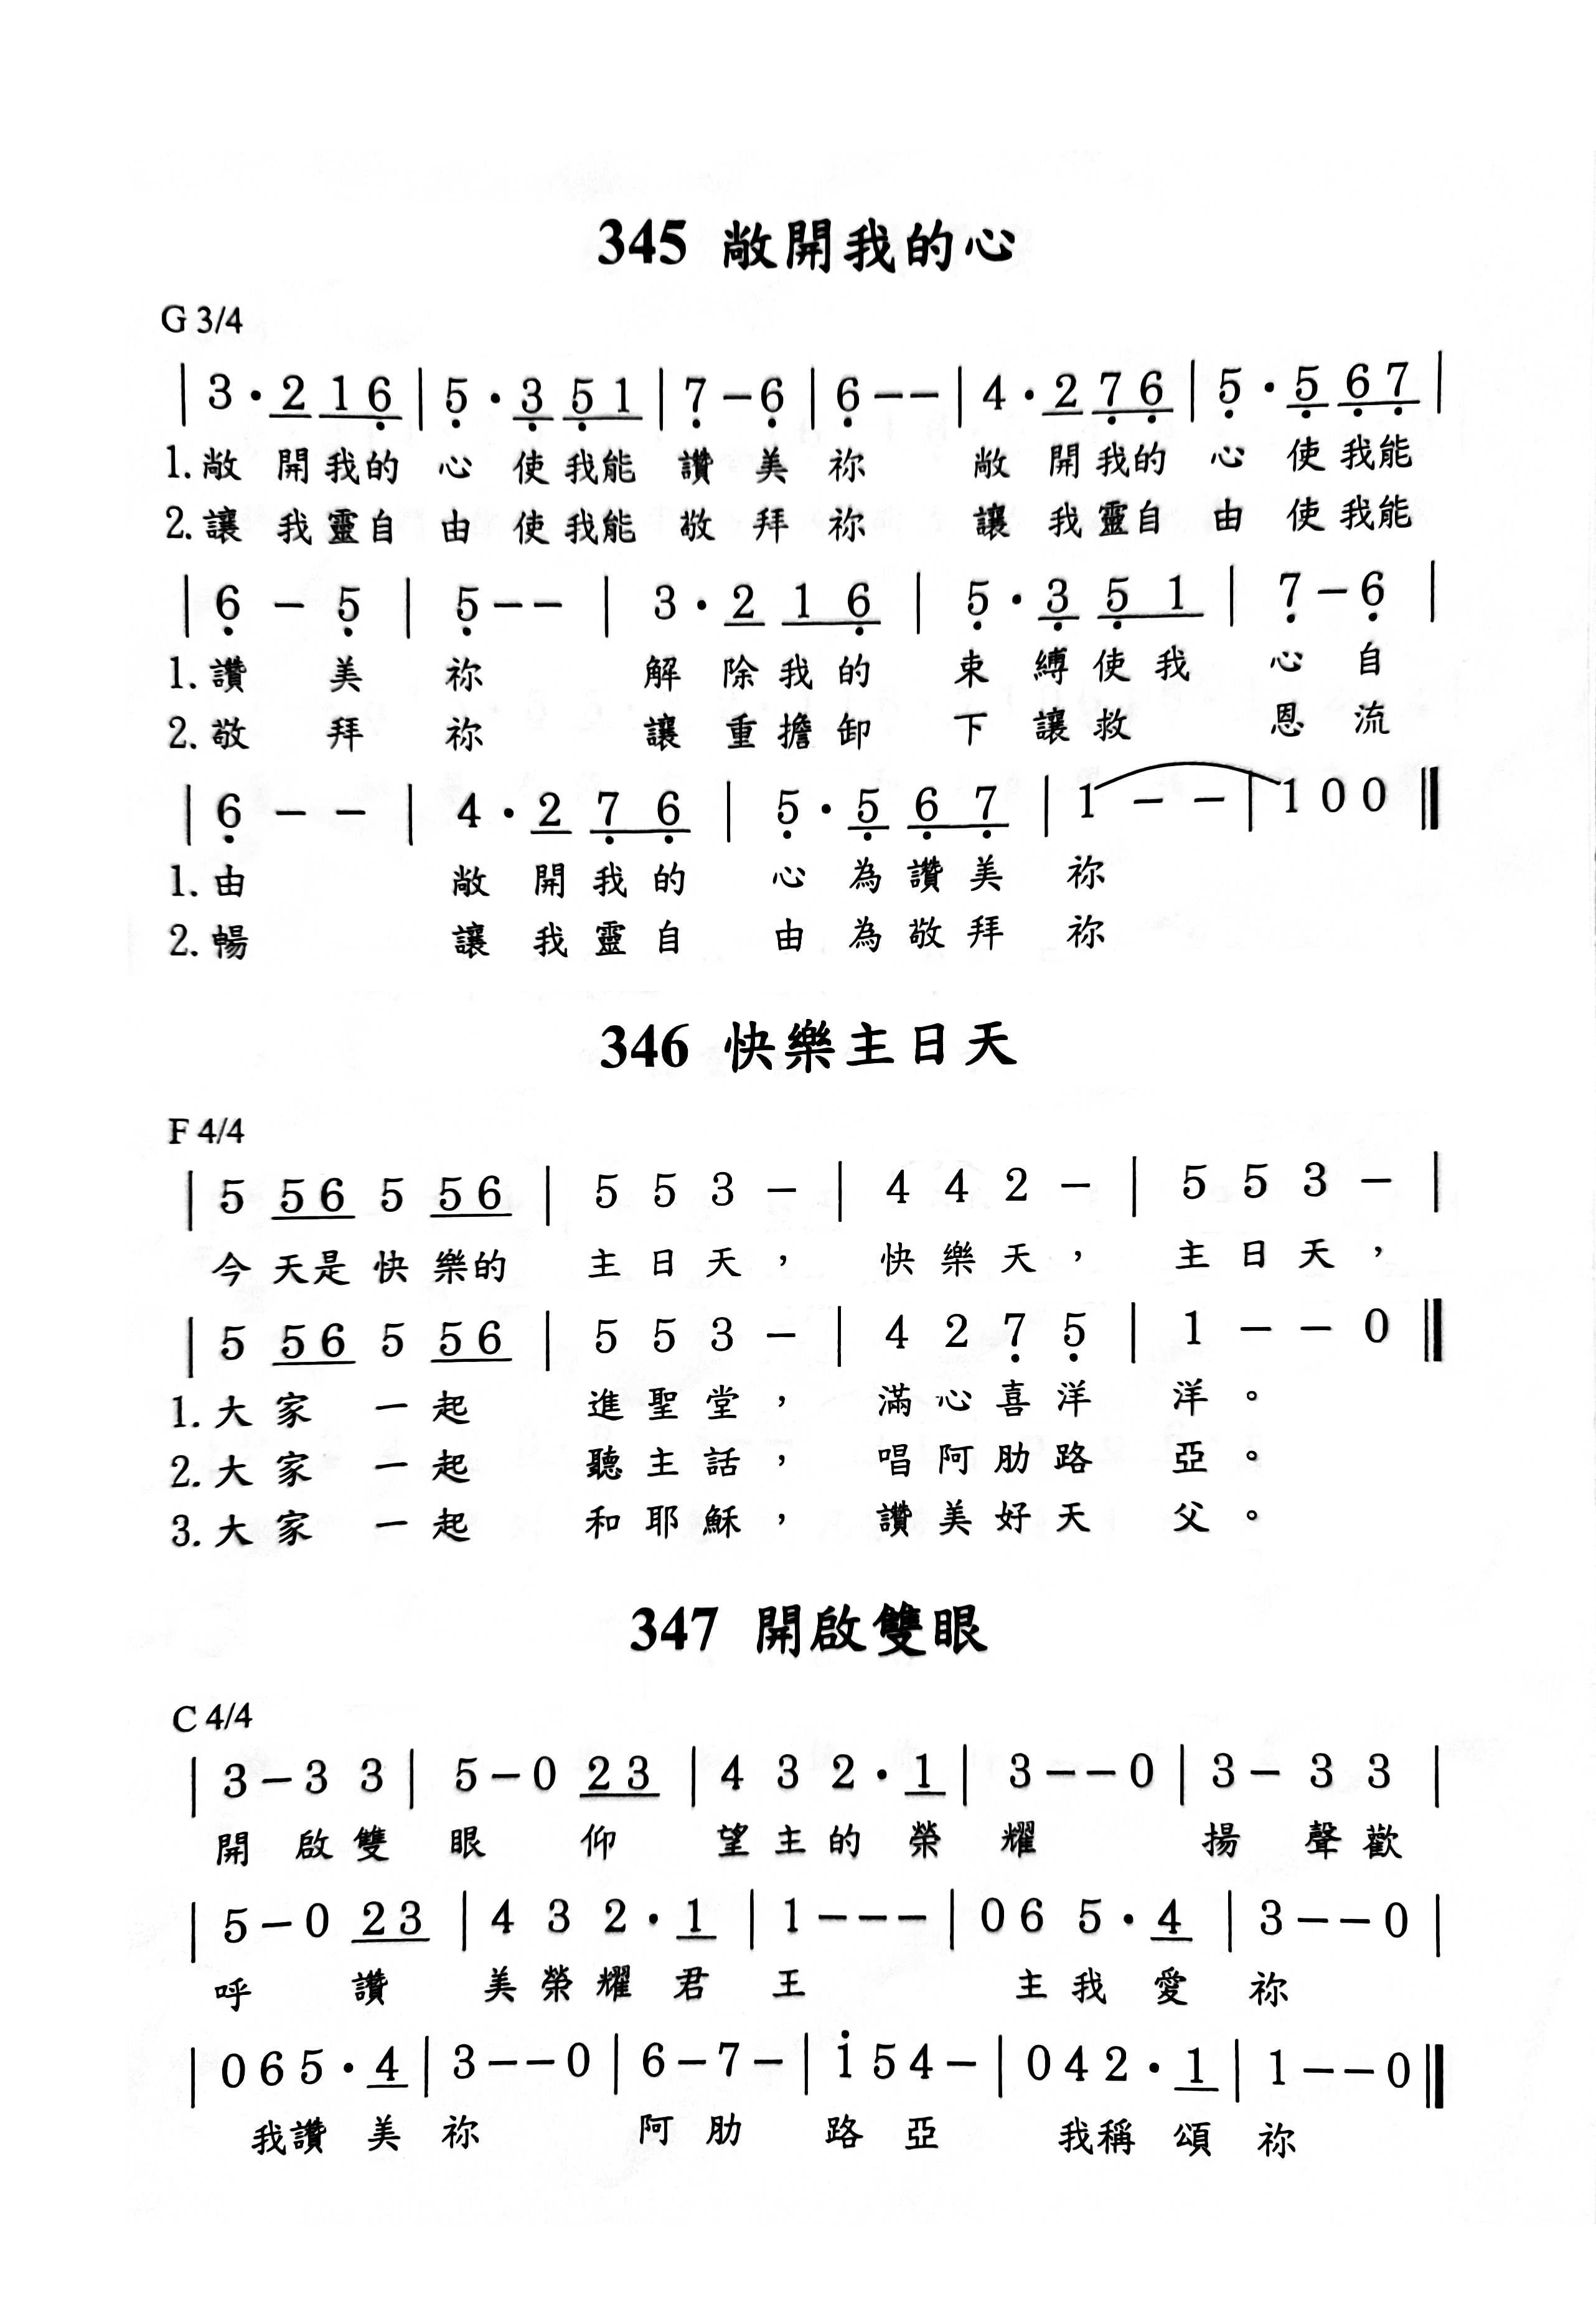 345 敞開我的心
G 3/4
| 3 · 2 1 6̣ | 5̣ · 3̣ 5̣ 1 | 7̣ – 6̣ | 6̣ – – | 4 · 2 7̣ 6̣ | 5̣ · 5̣ 6̣ 7̣ |
1. 敞 開 我的 心 使 我能 讚 美 祢 敞 開 我的 心 使 我能
2. 讓 我 靈自 由 使 我能 敬 拜 祢 讓 我 靈自 由 使 我能
| 6̣ – 5̣ | 5̣ – – | 3 · 2 1 6̣ | 5̣ · 3̣ 5̣ 1 | 7̣ – 6̣ |
1. 讚 美 祢 解 除 我 的 束 縛 使 我 心 自
2. 敬 拜 祢 讓 重 擔 卸 下 讓 救 恩 流
| 6̣ – – | 4 · 2 7̣ 6̣ | 5̣ · 5̣ 6̣ 7̣ | 1 – – | 1 0 0 ‖
1. 由 敞 開 我 的 心 為 讚 美 祢
2. 暢 讓 我 靈 自 由 為 敬 拜 祢
346 快樂主日天
F 4/4
| 5 5 6 5 5 6 | 5 5 3 – | 4 4 2 – | 5 5 3 – |
今 天是 快 樂的 主 日 天 , 快 樂 天 , 主 日 天 ,
| 5 5 6 5 5 6 | 5 5 3 – | 4 2 7̣ 5̣ | 1 – – 0 ‖
1. 大 家 一 起 進 聖 堂 , 滿 心 喜 洋 洋 。
2. 大 家 一 起 聽 主 話 , 唱 阿 肋 路 亞 。
3. 大 家 一 起 和 耶 穌 , 讚 美 好 天 父 。
347 開啟雙眼
C 4/4
| 3 – 3 3 | 5 – 0 2 3 | 4 3 2 · 1 | 3 – – 0 | 3 – 3 3 |
開 啟 雙 眼 仰 望 主 的 榮 耀 揚 聲 歡
| 5 – 0 2 3 | 4 3 2 · 1 | 1 – – – | 0 6 5 · 4 | 3 – – 0 |
呼 讚 美 榮 耀 君 王 主 我 愛 祢
| 0 6 5 · 4 | 3 – – 0 | 6 – 7 – | 1̇ 5 4 – | 0 4 2 · 1 | 1 – – 0 ‖
我讚 美 祢 阿 肋 路 亞 我稱 頌 祢